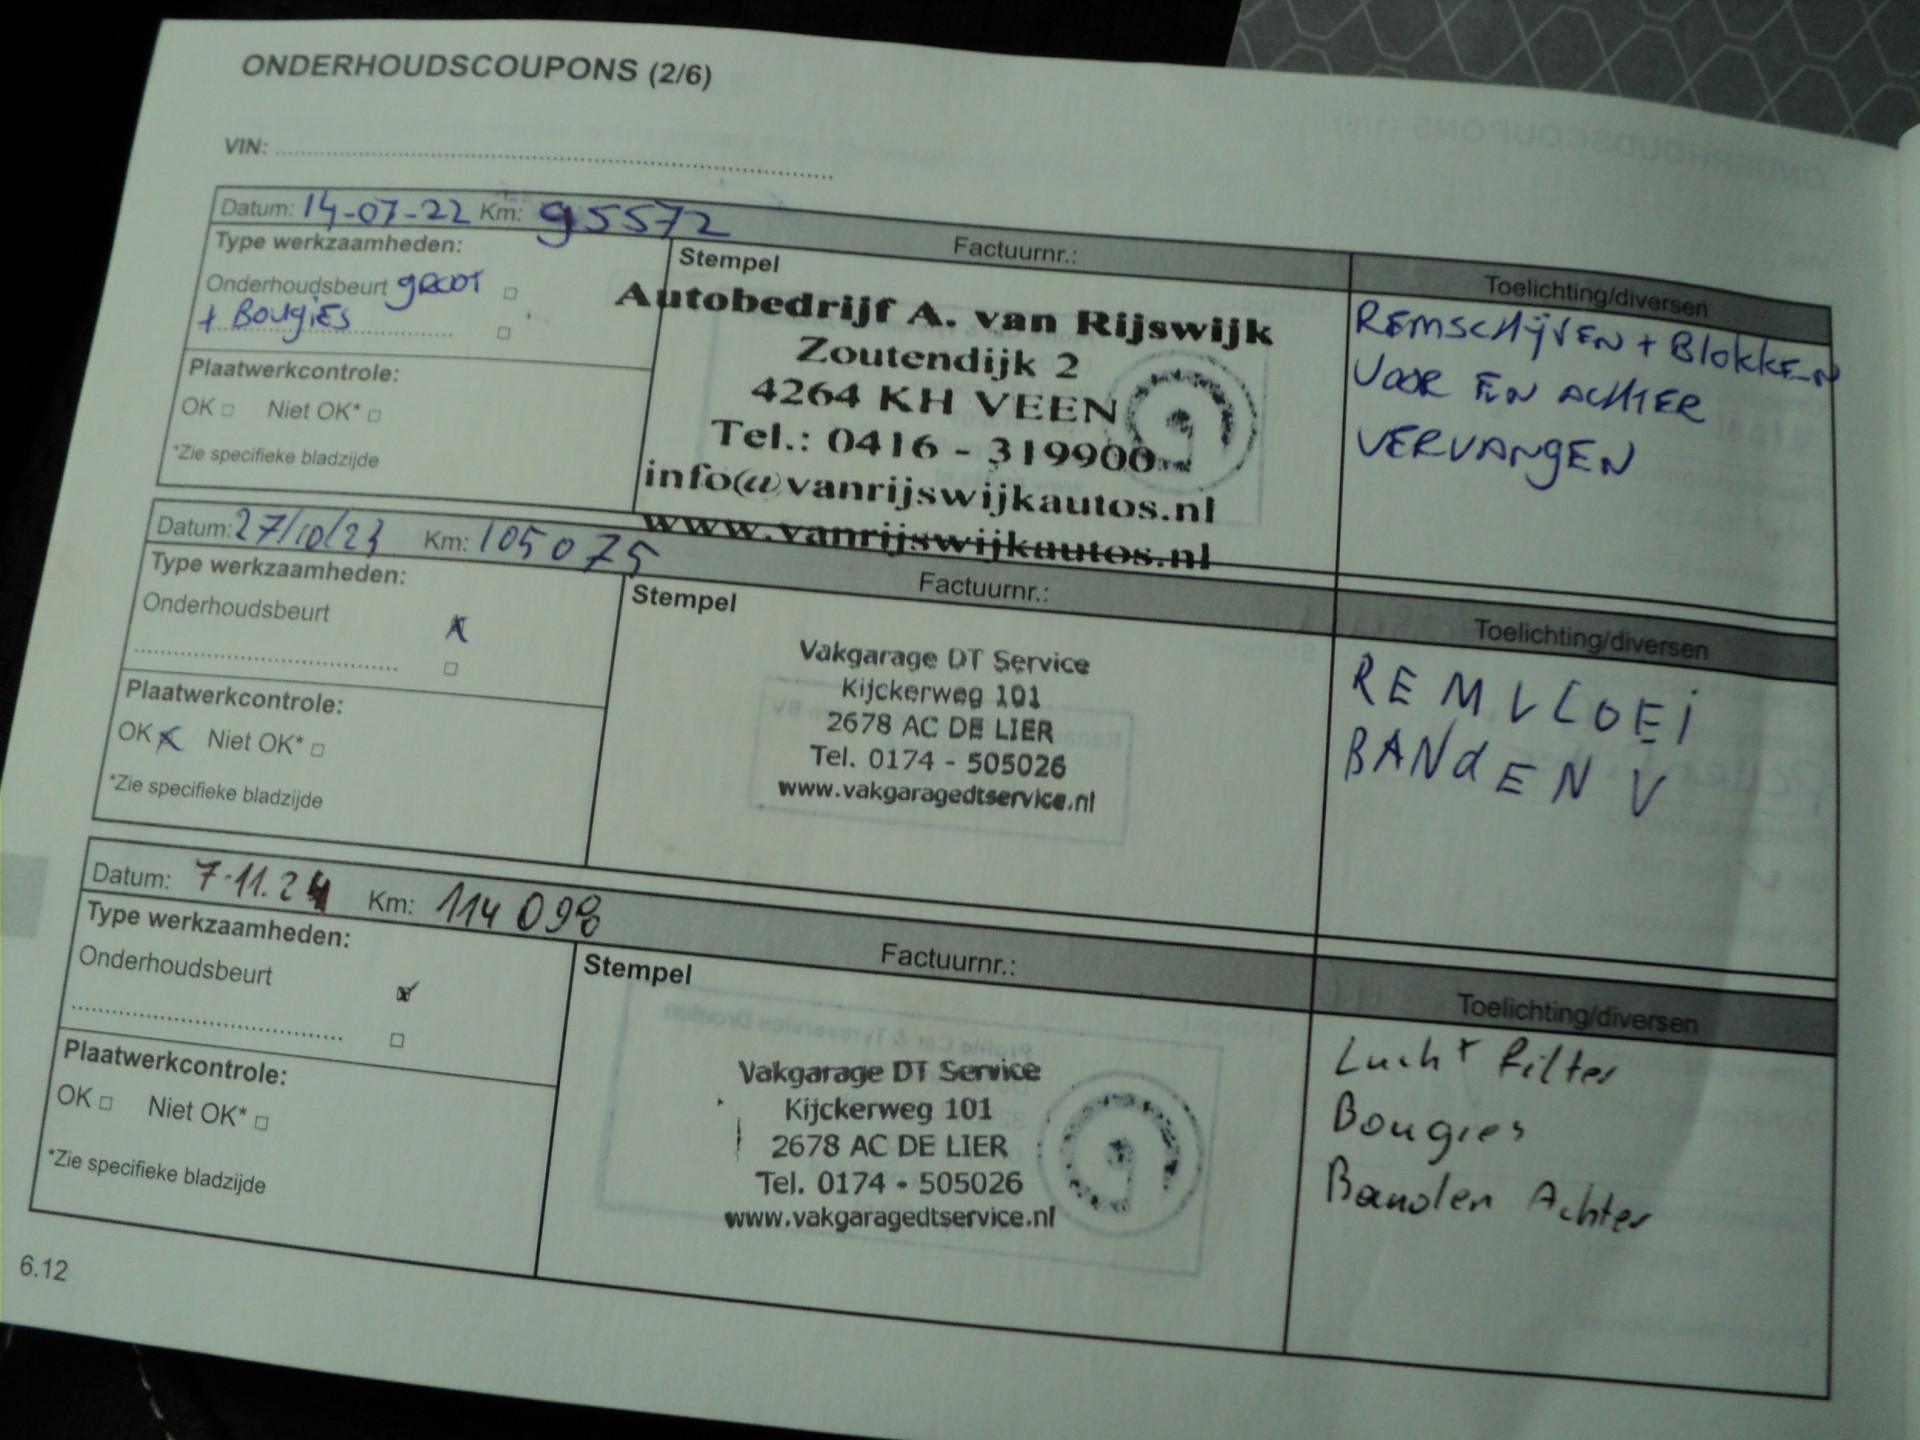 ONDERHOUDSCOUPONS (2/6)
VIN:
Datum: 14-07-22 Km: 95572 Factuurnr.:
Type werkzaamheden:
Onderhoudsbeurt groot
+ Bougies
Plaatwerkcontrole:
OK Niet OK*
*Zie specifieke bladzijde
Stempel
Autobedrijf A. van Rijswijk
Zoutendijk 2
4264 KH VEEN
Tel.: 0416 - 319900
info@vanrijswijkautos.nl
www.vanrijswijkautos.nl
Toelichting/diversen
REMSCHIJVEN + BLOKKEN
VOOR EN ACHTER
VERVANGEN
Datum: 27/10/23 Km: 105075 Factuurnr.:
Type werkzaamheden:
Onderhoudsbeurt
Plaatwerkcontrole:
OK Niet OK*
*Zie specifieke bladzijde
Stempel
Vakgarage DT Service
Kijckerweg 101
2678 AC DE LIER
Tel. 0174 - 505026
www.vakgaragedtservice.nl
Toelichting/diversen
REMVLOEI
BANdEN V
Datum: 7-11.24 Km: 114098 Factuurnr.:
Type werkzaamheden:
Onderhoudsbeurt
Plaatwerkcontrole:
OK Niet OK*
*Zie specifieke bladzijde
Stempel
Vakgarage DT Service
Kijckerweg 101
2678 AC DE LIER
Tel. 0174 - 505026
www.vakgaragedtservice.nl
Toelichting/diversen
Lucht filter
Bougies
Banden Achter
6.12